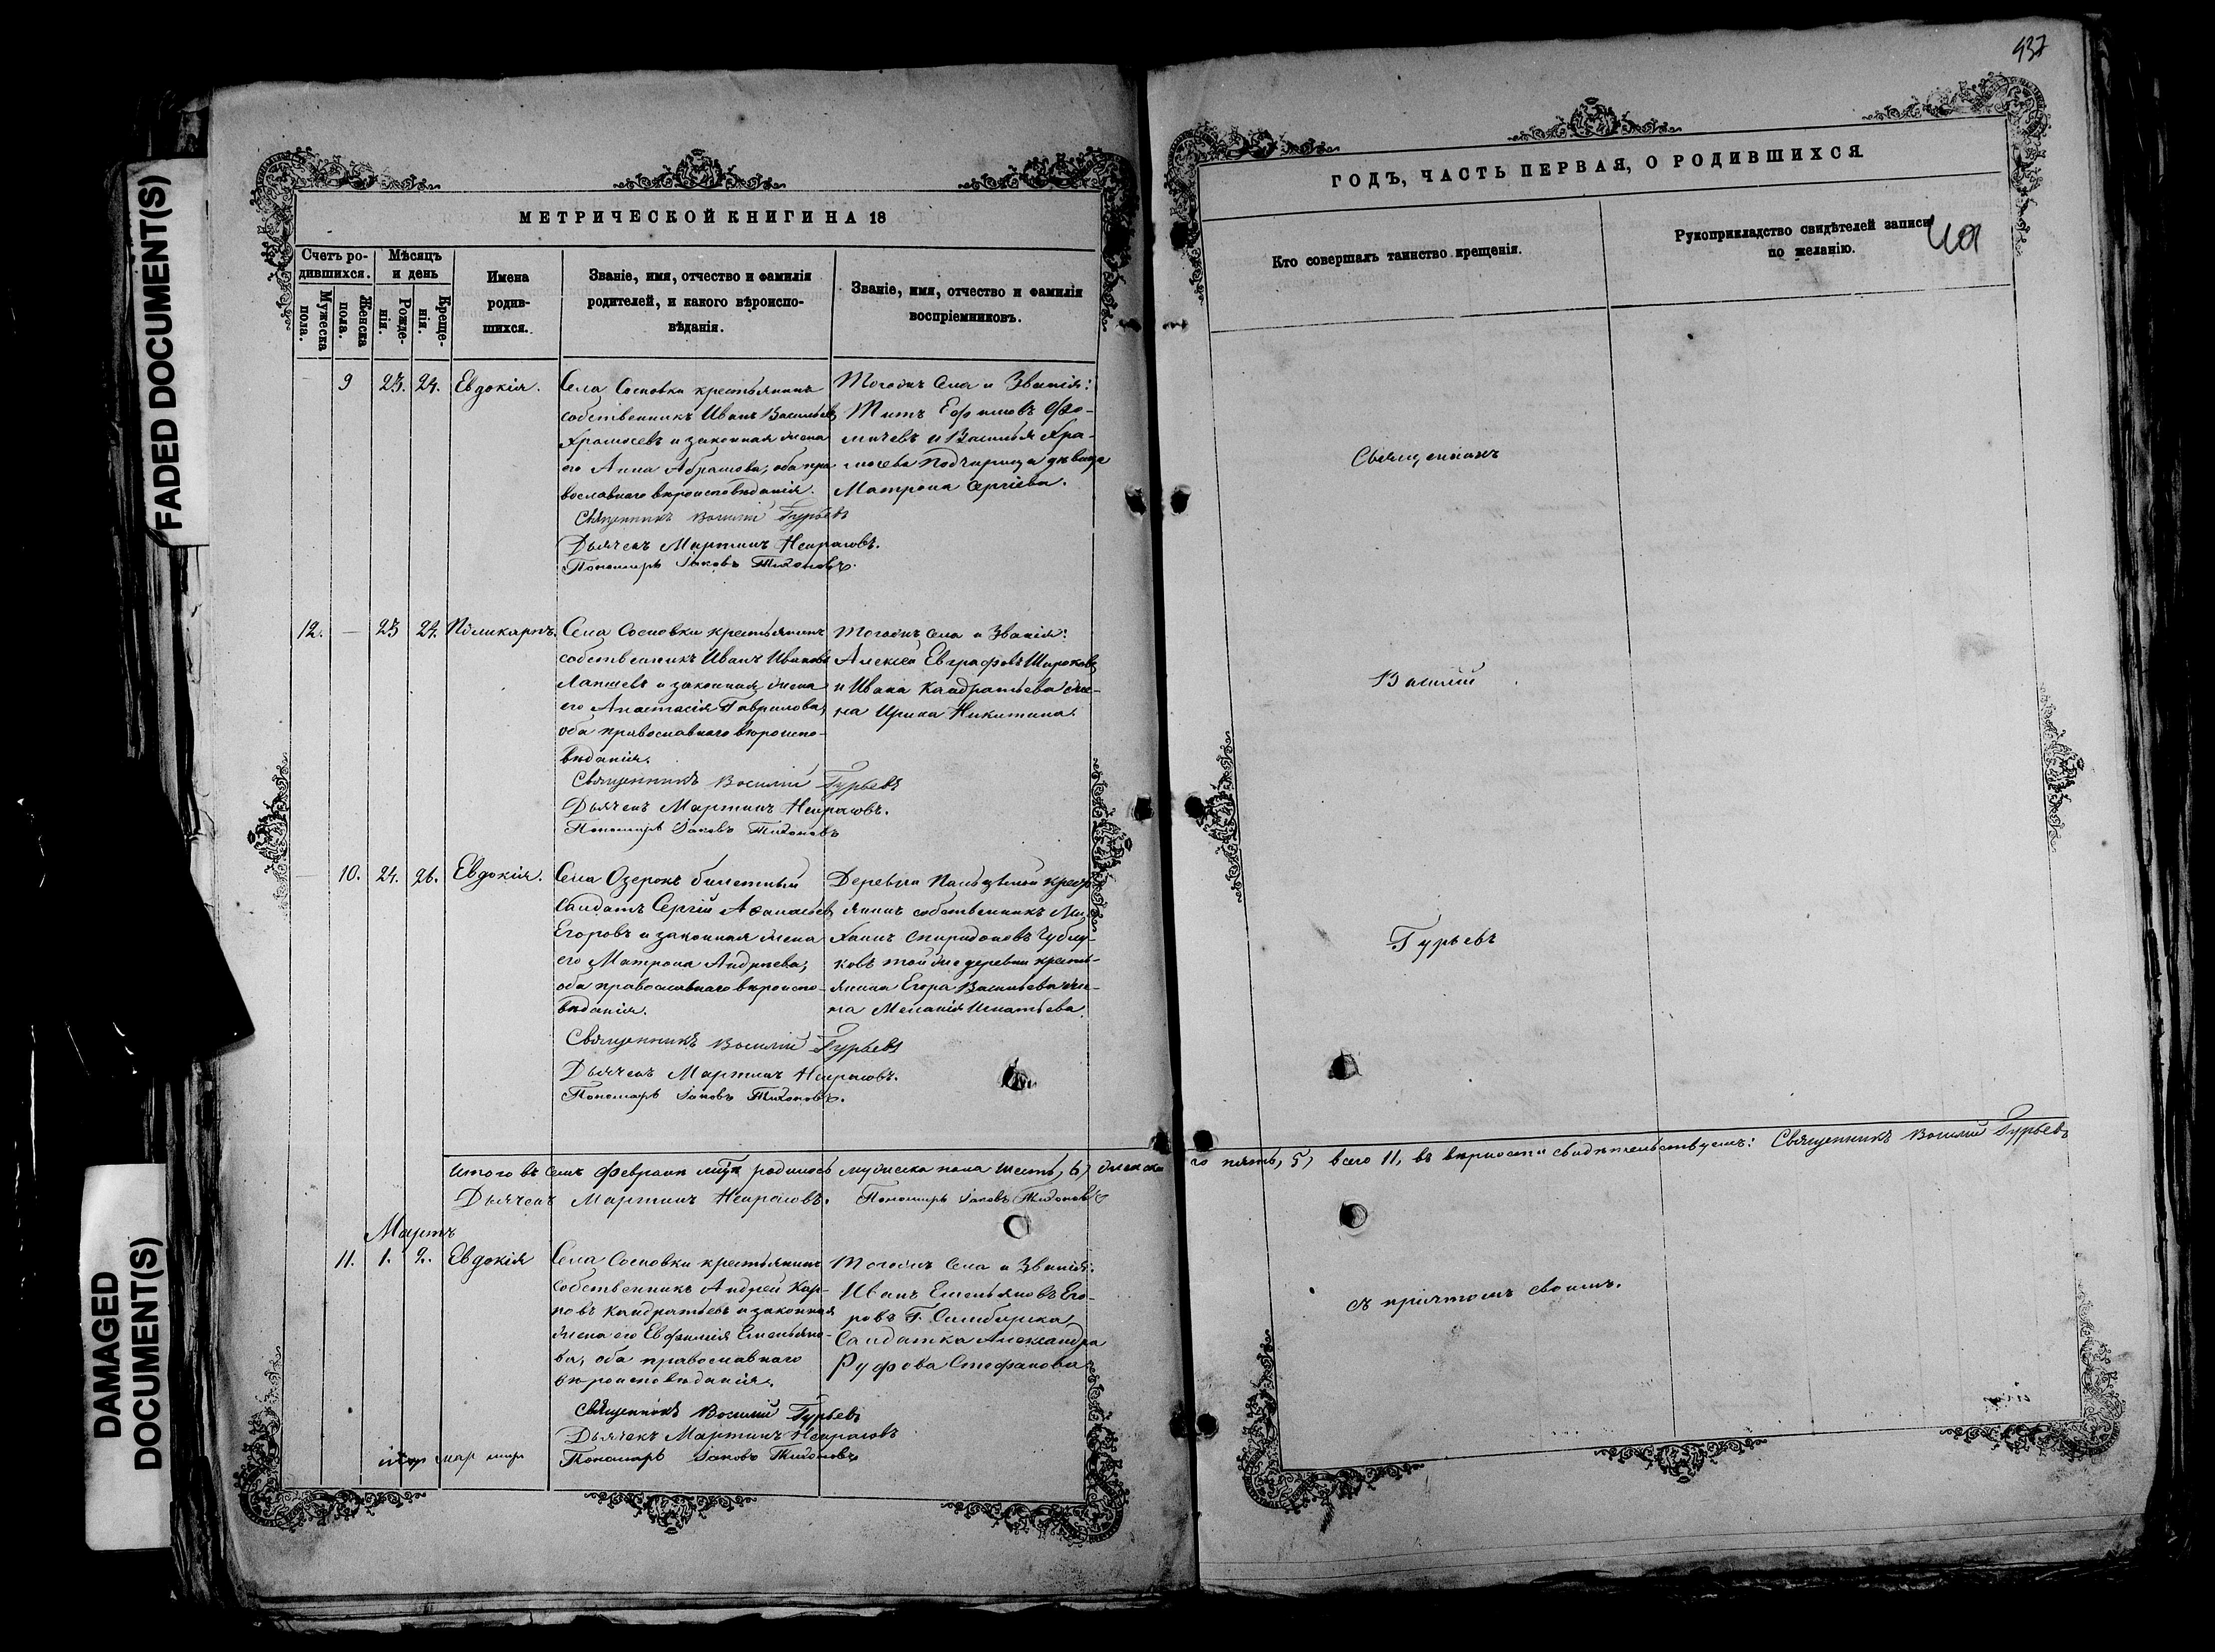 FADED DOCUMENT(S)
DAMAGED
DOCUMENT(S)
МЕТРИЧЕСКОЙ КНИГИ НА 18
Счетъ ро-
дившихся.
Мужеска
пола.
Женска
пола.
Мѣсяцъ
и день
Рожде-
нія.
Креще-
нія.
Имена
родив-
шихся.
Званіе, имя, отчество и фамилія
родителей, и какого вѣроиспо-
вѣданія.
Званіе, имя, отчество и фамилія
воспріемниковъ.
9 23. 24. Евдокія.
Села Сосновки крестьянинъ
собственникъ Иванъ Васильевъ
Храмосевъ и законная жена
его Анна Абрамова, оба пра
вославнаго вѣроисповѣданія.
Священникъ Василій Гурьевъ
Дьячекъ Мартинъ Некрасовъ.
Пономарь Іаковъ Тихоновъ.
Тогожъ Села и Званія:
Титъ Ефимовъ Фо-
мичевъ и Василья Хра-
мосева Подчерица дѣвица
Матрона Сергіева.
12. — 23 24. Поликарпъ.
Села Сосновки крестьянинъ
собственникъ Иванъ Ивановъ
Лапшевъ и законная жена
его Анастасія Гаврилова,
оба православнаго вѣроиспо-
вѣданія.
Священникъ Василій Гурьевъ
Дьячекъ Мартинъ Некрасовъ.
Пономарь Іаковъ Тихоновъ
Тогожъ Села и Званія:
Алексей Евграфовъ Широковъ
и Ивана Кандратьева же-
на Ирина Никитина.
10. 24. 26. Евдокія.
Села Озерокъ билетный
Салдатъ Сергій Афанасьевъ
Егоровъ и законная жена
его Матрона Андреева,
оба православнаго вѣроиспо-
вѣданія.
Священникъ Василій Гурьевъ
Дьячекъ Мартинъ Некрасовъ.
Пономарь Іаковъ Тихоновъ.
Деревни крест
янинъ собственникъ Ми-
хаилъ Спиридоновъ Чублу-
ковъ той же деревни кресть-
янина Егора Васильева же-
на Меланія Игнатьева
Итого въ семъ Февралѣ мцѣ родилось мужеска пола шесть, 6, женска
го пять, 5, всего 11, въ вѣрности свидѣтельствуемъ: Священникъ Василій Гурьевъ
Дьячекъ Мартинъ Некрасовъ. Пономарь Іаковъ Тихоновъ
Мартъ
11. 1. 2. Евдокія
Села Сосновки крестьянинъ
Собственникъ Андрей Кар-
повъ Кандратьевъ и законная
жена его Евфимія Емельяно-
ва, оба православнаго
вѣроисповѣданія.
Священникъ Василій Гурьевъ
Дьячекъ Мартинъ Некрасовъ
Пономарь Іаковъ Тихоновъ
Тогожъ Села и Званія:
Иванъ Емельяновъ Его-
ровъ Г. Симбирска,
Салдатка Александра
Руфова Стефанова
мар мар
437
ГОДЪ, ЧАСТЬ ПЕРВАЯ, О РОДИВШИХСЯ
Кто совершалъ таинство крещенія.
Рукоприкладство свидѣтелей записи
по желанію.
Священникъ
Василій
Гурьевъ
съ причтомъ своимъ.